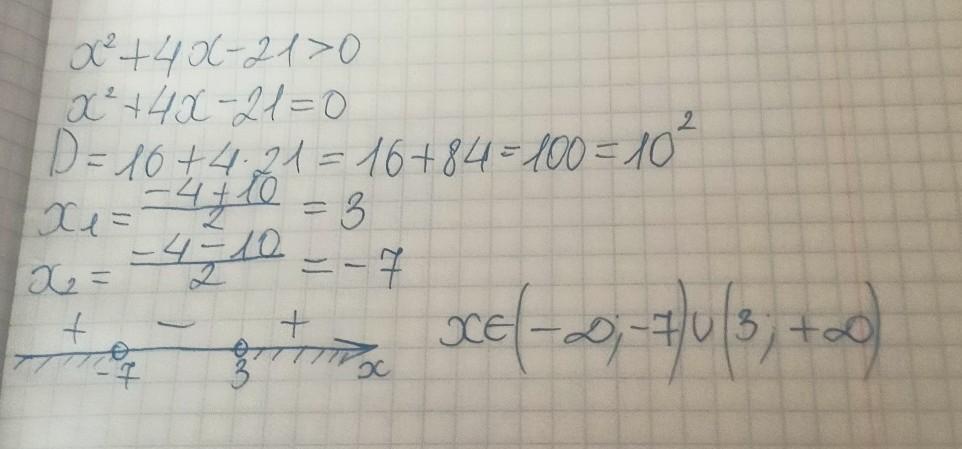 x²+4x-21>0
x²+4x-21=0
D=16+4·21=16+84=100=10²
x₁=(-4+10)/2=3
x₂=(-4-10)/2=-7
+ - +
-7 3 x
x∈(-∞;-7)∪(3;+∞)